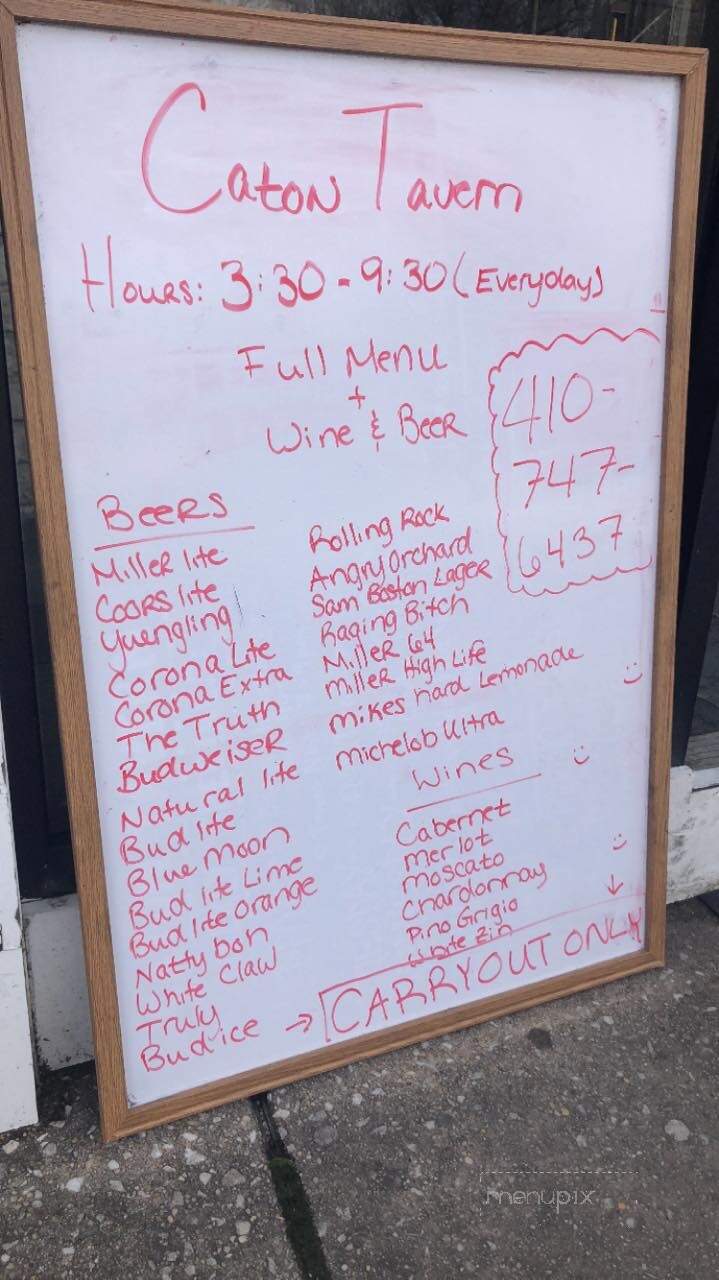 Caton Tavern
Hours: 3:30 - 9:30 (Everyday)
Full Menu
+
Wine & Beer
410-
747-
6437
Beers
Miller lite
Coors lite
Yuengling
Corona Lite
Corona Extra
The Truth
Budweiser
Natural lite
Bud lite
Blue Moon
Bud lite Lime
Bud lite Orange
Natty boh
White Claw
Truly
Bud ice
Rolling Rock
Angry Orchard
Sam Boston Lager
Raging Bitch
Miller 64
Miller High Life
Mikes hard Lemonade
Michelob Ultra
Wines
Cabernet
Merlot
Moscato
Chardonnay
Pino Grigio
White Zin
→ CARRYOUT ONLY
menupix